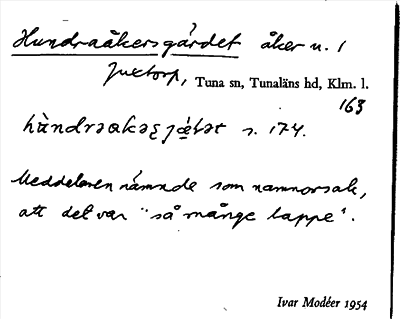 Hundraåkersgärdet åker n. 1
Juetorp, Tuna sn, Tunaläns hd, Klm. l.
163
hùndrəakəʂ jǽḷət s. 174.
Meddelaren nämnde som namnorsak,
att det var "så många lappe".
Ivar Modéer 1954